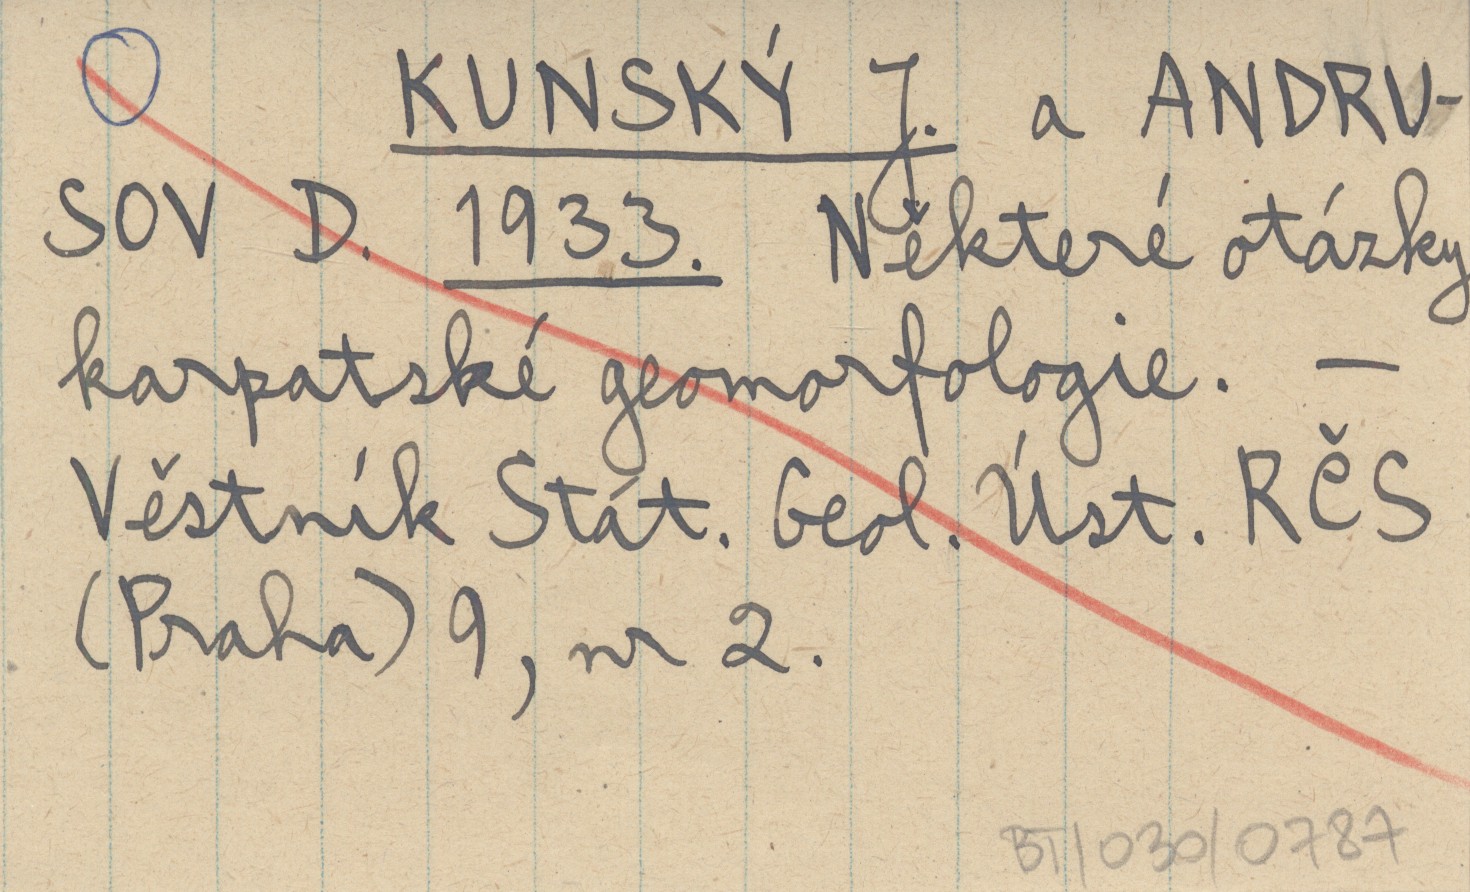 KUNSKÝ J. a ANDRU-
SOV D. 1933. Některé otázky
karpatské geomorfologie. —
Věstník Stát. Geol. Úst. RČS
(Praha) 9, nr 2.
BT/030/0787